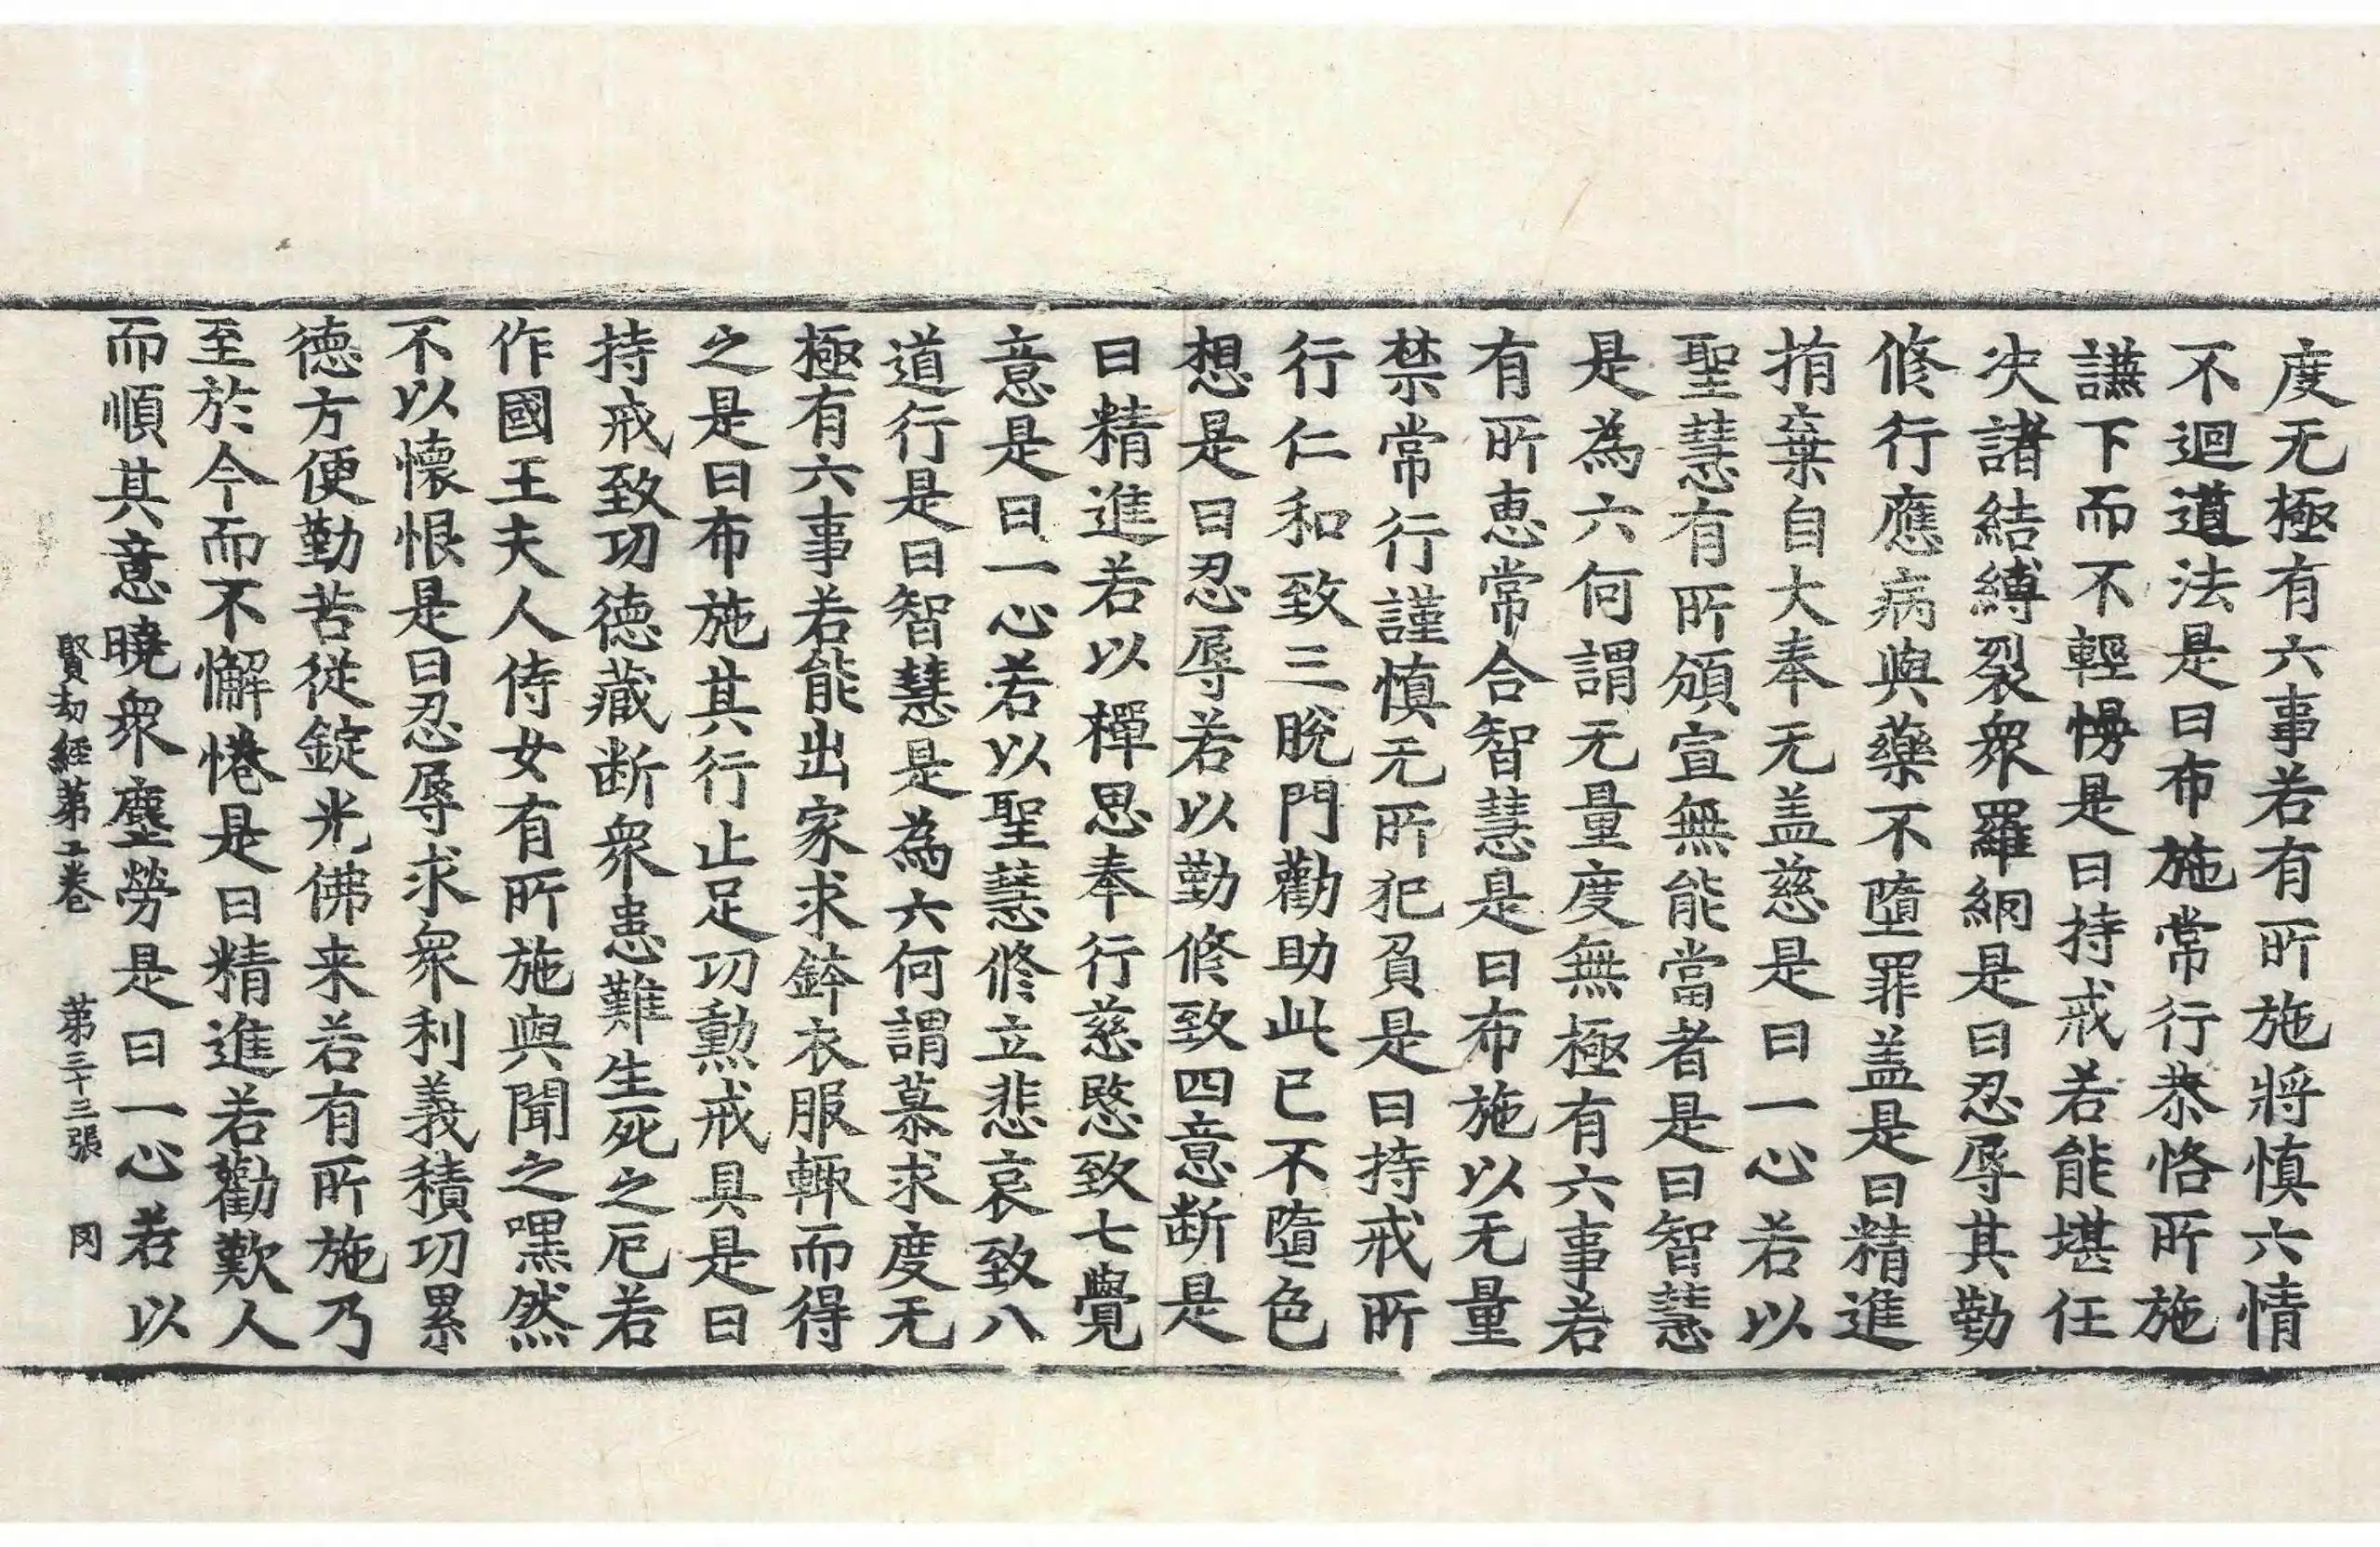 度无極有六事若有所施將慎六情
不迴道法是曰布施常行恭恪所施
謙下而不輕慢是曰持戒若能堪任
决諸結縛裂衆羅網是曰忍辱其勤
修行應病與藥不墮罪盖是曰精進
捐棄自大奉无盖慈是曰一心若以
聖慧有所頒宣無能當者是曰智慧
是為六何謂无量度無極有六事若
有所惠常合智慧是曰布施以无量
禁常行謹慎无所犯負是曰持戒所
行仁和致三脫門勸助此已不墮色
想是曰忍辱若以勤修致四意断是
曰精進若以禪思奉行慈愍致七覺
意是曰一心若以聖慧修立悲哀致八
道行是曰智慧是為六何謂慕求度无
極有六事若能出家求鉢衣服輙而得
之是曰布施其行止足功勲戒具是曰
持戒致功德藏断衆患難生死之厄若
作國王夫人侍女有所施與聞之嘿然
不以懷恨是曰忍辱求衆利義積功累
德方便勤苦從錠光佛来若有所施乃
至於今而不懈惓是曰精進若勸歎人
而順其意曉衆塵勞是曰一心若以
賢劫經第二卷　第三十三張　罔